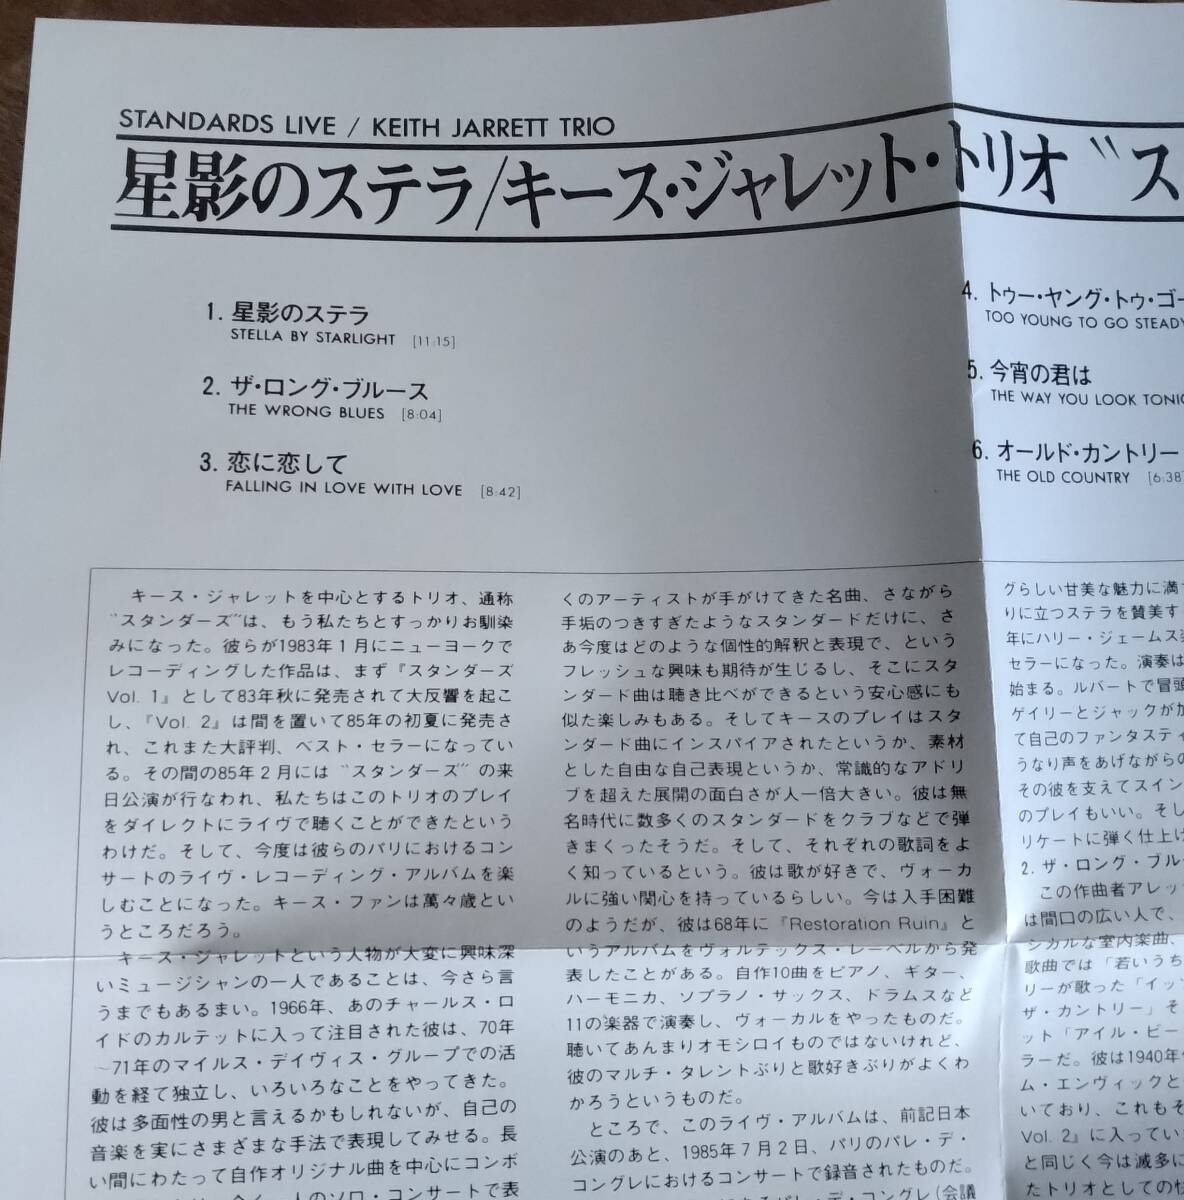 STANDARDS LIVE / KEITH JARRETT TRIO
星影のステラ/キース・ジャレット・トリオ〝ス
1. 星影のステラ
STELLA BY STARLIGHT [11:15]
2. ザ・ロング・ブルース
THE WRONG BLUES [8:04]
3. 恋に恋して
FALLING IN LOVE WITH LOVE [8:42]
4. トゥー・ヤング・トゥ・ゴー
TOO YOUNG TO GO STEADY
5. 今宵の君は
THE WAY YOU LOOK TONIG
6. オールド・カントリー
THE OLD COUNTRY [6:38]
キース・ジャレットを中心とするトリオ、通称
〝スタンダーズ〟は、もう私たちとすっかりお馴染
みになった。彼らが1983年1月にニューヨークで
レコーディングした作品は、まず『スタンダーズ
Vol. 1』として83年秋に発売されて大反響を起こ
し、『Vol. 2』は間を置いて85年の初夏に発売さ
れ、これまた大評判、ベスト・セラーになってい
る。その間の85年2月には〝スタンダーズ〟の来
日公演が行なわれ、私たちはこのトリオのプレイ
をダイレクトにライヴで聴くことができたという
わけだ。そして、今度は彼らのパリにおけるコン
サートのライヴ・レコーディング・アルバムを楽
しむことになった。キース・ファンは萬々歳とい
うところだろう。
キース・ジャレットという人物が大変に興味深
いミュージシャンの一人であることは、今さら言
うまでもあるまい。1966年、あのチャールス・ロ
イドのカルテットに入って注目された彼は、70年
〜71年のマイルス・デイヴィス・グループでの活
動を経て独立し、いろいろなことをやってきた。
彼は多面性の男と言えるかもしれないが、自己の
音楽を実にさまざまな手法で表現してみせる。長
い間にわたって自作オリジナル曲を中心にコンボ
一人のソロ・コンサートで表
くのアーティストが手がけてきた名曲、さながら
手垢のつきすぎたようなスタンダードだけに、さ
あ今度はどのような個性的解釈と表現で、という
フレッシュな興味も期待が生じるし、そこにスタ
ンダード曲は聴き比べができるという安心感にも
似た楽しみもある。そしてキースのプレイはスタ
ンダード曲にインスパイアされたというか、素材
とした自由な自己表現というか、常識的なアドリ
ブを超えた展開の面白さが人一倍大きい。彼は無
名時代に数多くのスタンダードをクラブなどで弾
きまくったそうだ。そして、それぞれの歌詞をよ
く知っているという。彼は歌が好きで、ヴォーカ
ルに強い関心を持っているらしい。今は入手困難
のようだが、彼は68年に『Restoration Ruin』と
いうアルバムをヴォルテックス・レーベルから発
表したことがある。自作10曲をピアノ、ギター、
ハーモニカ、ソプラノ・サックス、ドラムスなど
11の楽器で演奏し、ヴォーカルをやったものだ。
聴いてあんまりオモシロイものではないけれど、
彼のマルチ・タレントぶりと歌好きぶりがよくわ
かろうというものだ。
ところで、このライヴ・アルバムは、前記日本
公演のあと、1985年7月2日、パリのパレ・デ・
コングレにおけるコンサートで録音されたものだ。
パレ・デ・コングレ(会議
グらしい甘美な魅力に満
りに立つステラを賛美す
年にハリー・ジェームス
セラーになった。演奏は
始まる。ルバートで冒頭
ゲイリーとジャックが加
て自己のファンタスティ
うなり声をあげながらの
その彼を支えてスイン
のプレイもいい。そし
リケートに弾く仕上げ
2. ザ・ロング・ブル
この作曲者アレッ
は間口の広い人で、
シカルな室内楽曲、
歌曲では「若いうち
リーが歌った「イッ
ザ・カントリー」そ
ット「アイル・ビー
ラーだ。彼は1940年
ム・エンヴィックと
いており、これもそ
Vol. 2』に入ってい
と同じく今は滅多に
たトリオとしての